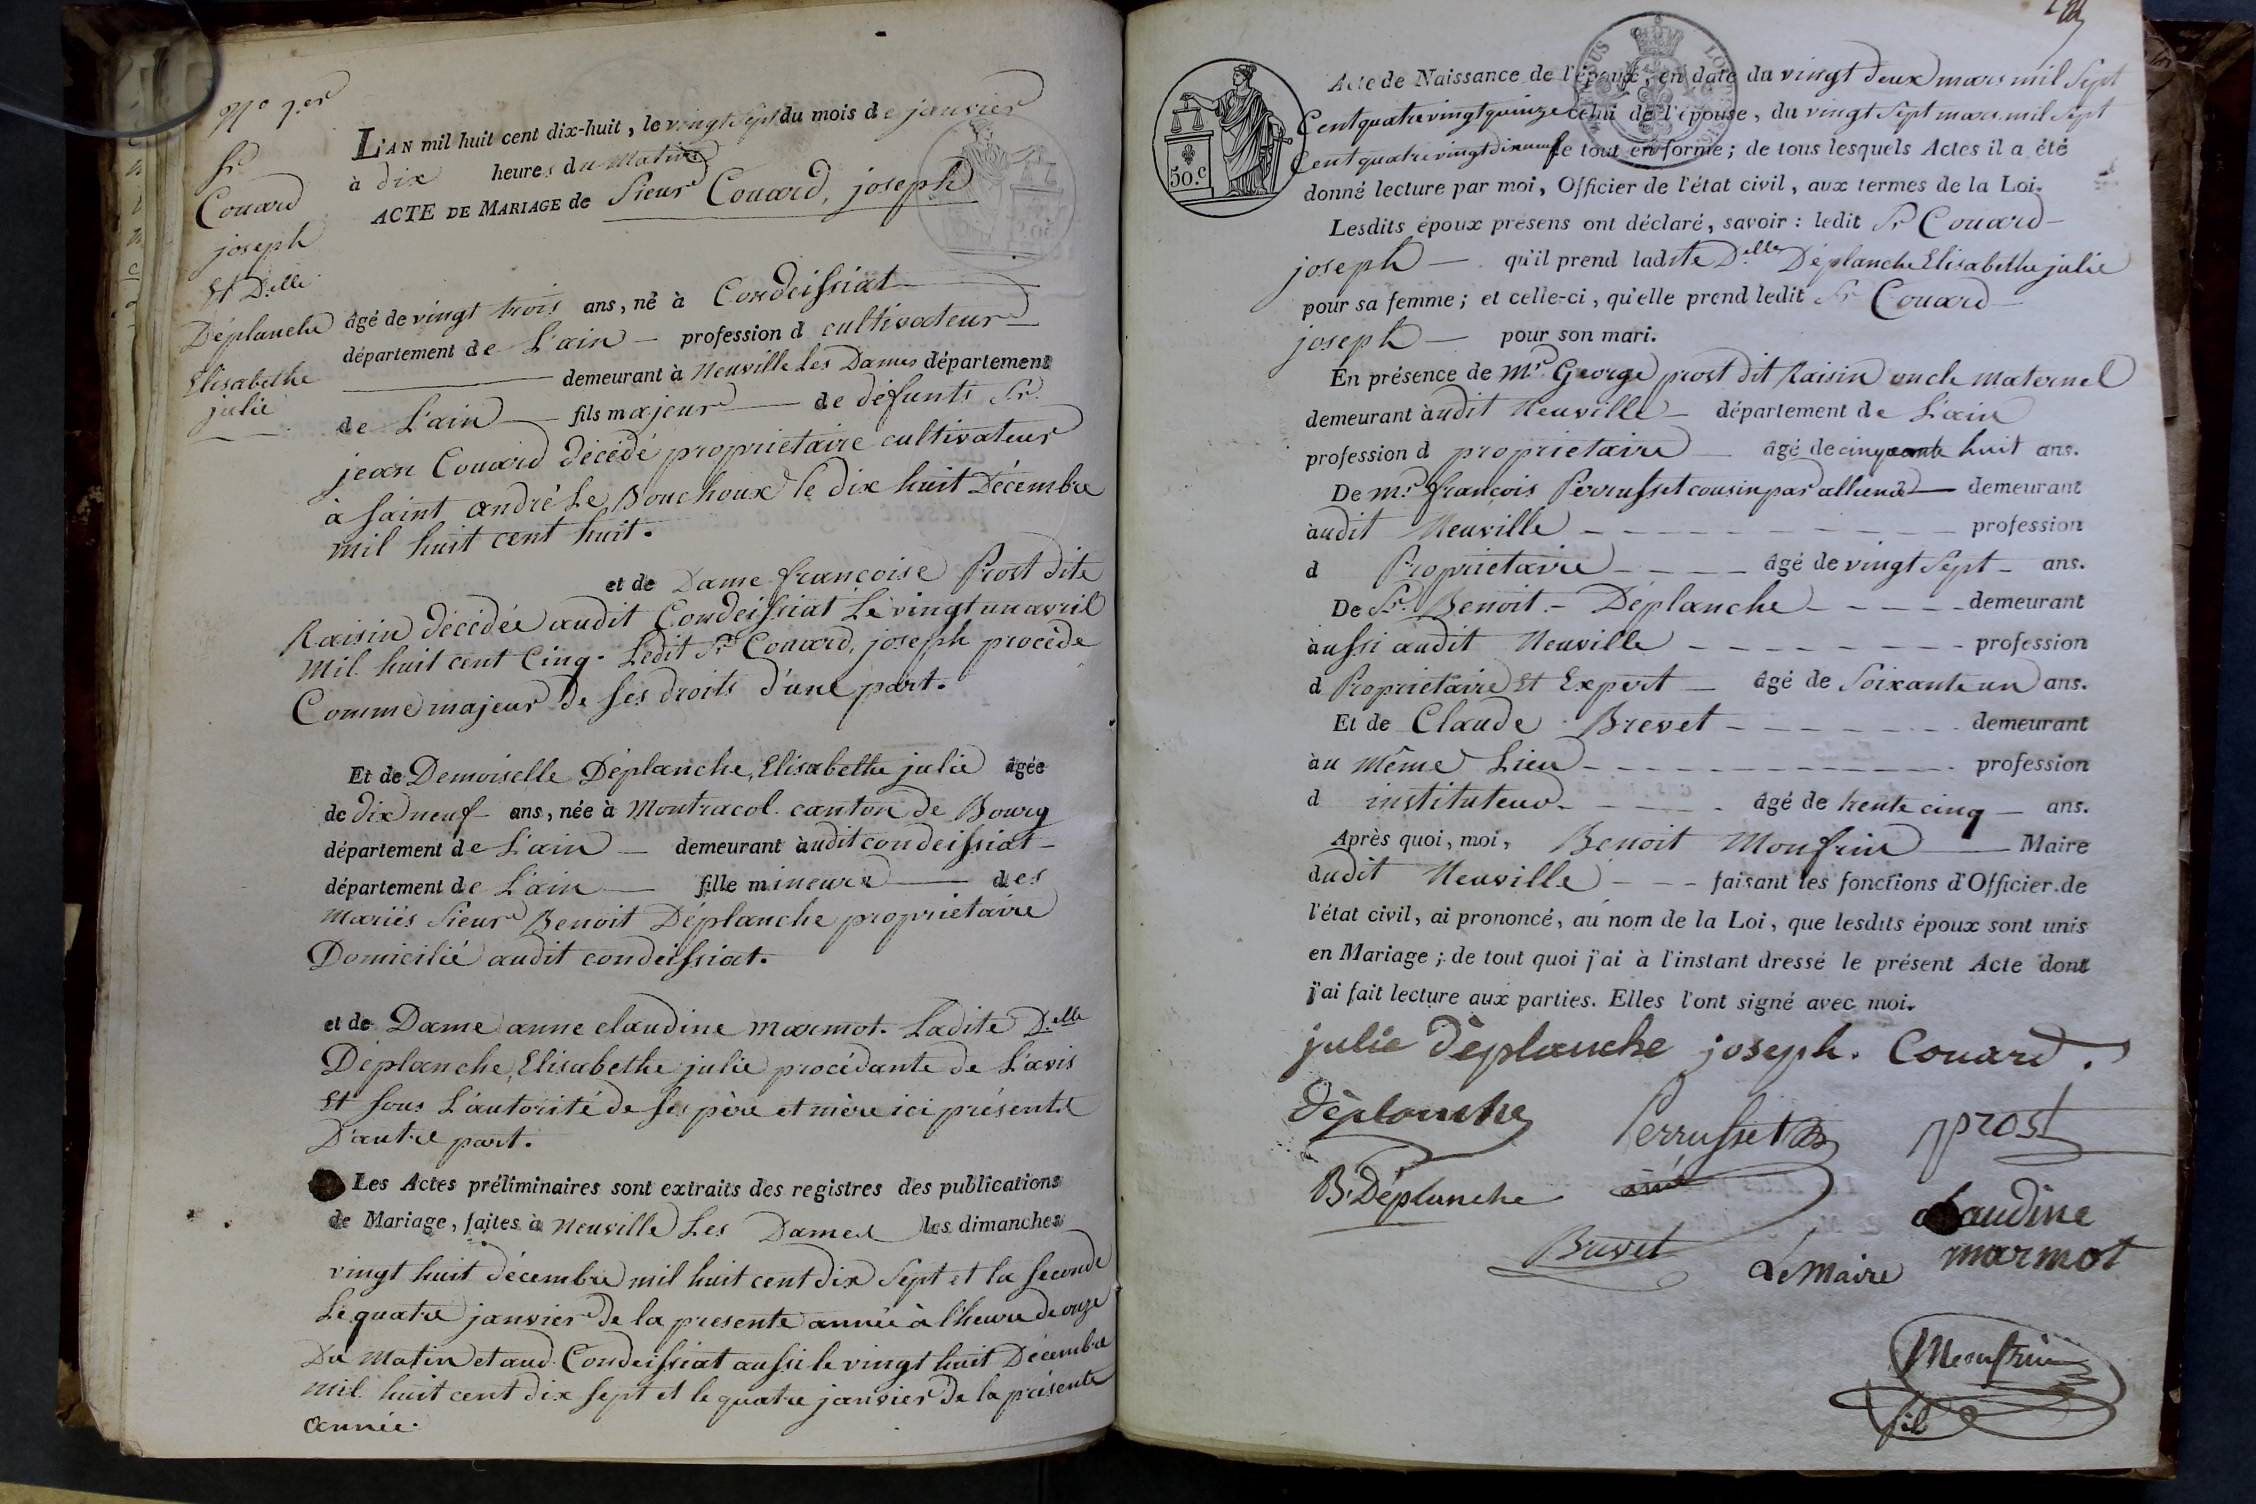 No 1er
Sr
Couard
joseph
Et Delle
Déplanche
Elisabethe
julie
L'AN mil huit cent dix-huit, le vingt sept du mois de janvier
à dix heures du matin
ACTE DE MARIAGE de Sieur Couard, joseph
âgé de vingt trois ans, né à Condeissiat
département de L'ain profession d cultivateur
demeurant à Neuville Les Dames département
de L'ain fils majeur de défunts Sr
jean Couard décédé propriétaire cultivateur
à saint andré Le Bouchoux le dix huit Décembre
mil huit cent huit.
et de Dame françoise Prost dite
Raisin décédée audit Condeissiat Le vingt un avril
mil huit cent Cinq. Ledit Sr Couard, joseph procède
Comme majeur de ses droits d'une part.
Et de Demoiselle Déplanche, Elisabethe julie âgée
de dix neuf ans, née à Montracol canton de Bourg
département de L'ain demeurant audit condeissiat
département de L'ain fille mineure des
mariés Sieur Benoit Déplanche propriétaire
Domicilié audit condeissiat.
et de Dame anne claudine marmot. Ladite Delle
Déplanche, Elisabethe julie procédante de L'avis
Et sous L'autorité de ses père et mère ici présents
D'autre part.
Les Actes préliminaires sont extraits des registres des publications
de Mariage, faites à Neuville Les Dames les dimanches
vingt huit décembre mil huit cent dix sept et la seconde
Le quatre janvier de la presente année à l'heure de onze
Du Matin et aud. Condeissiat aussi le vingt huit Décembre
mil huit cent dix sept et le quatre janvier de la présente
année.
50.c
Acte de Naissance de l'époux, en date du vingt deux mars mil sept
Cent quatre vingt quinze celui de l'épouse, du vingt sept mars mil sept
Cent quatre vingt dix neuf le tout en forme; de tous lesquels Actes il a été
donné lecture par moi, Officier de l'état civil, aux termes de la Loi.
Lesdits époux présens ont déclaré, savoir: ledit Sr Couard
joseph qu'il prend ladite Delle Déplanche Elisabethe julie
pour sa femme; et celle-ci, qu'elle prend ledit Sr Couard
joseph pour son mari.
En présence de Mr George prost dit Raisin oncle maternel
demeurant audit Neuville département de L'ain
profession d propriétaire âgé de cinquante huit ans.
De mr françois Perrusset cousin par alliance demeurant
audit Neuville profession
d Propriétaire âgé de vingt sept ans.
De Sr Benoit Déplanche demeurant
aussi audit Neuville profession
d Propriétaire Et Expert âgé de Soixante un ans.
Et de Claude Brevet demeurant
au Même Lieu profession
d instituteur âgé de trente cinq ans.
Après quoi, moi, Benoit Monfrin Maire
dudit Neuville faisant les fonctions d'Officier de
l'état civil, ai prononcé, au nom de la Loi, que lesdits époux sont unis
en Mariage; de tout quoi j'ai à l'instant dressé le présent Acte dont
j'ai fait lecture aux parties. Elles l'ont signé avec moi.
julie dèplanche joseph. Couard.
dèplanche Perrusset prost
B. Déplanche ainé claudine
Brevet Le Maire marmot
Monfrin
fils